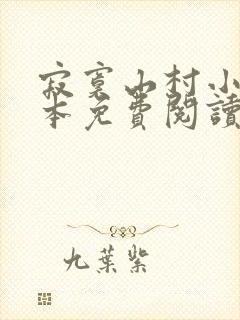 寂寞山村小
本免費閱讀
九葉紫